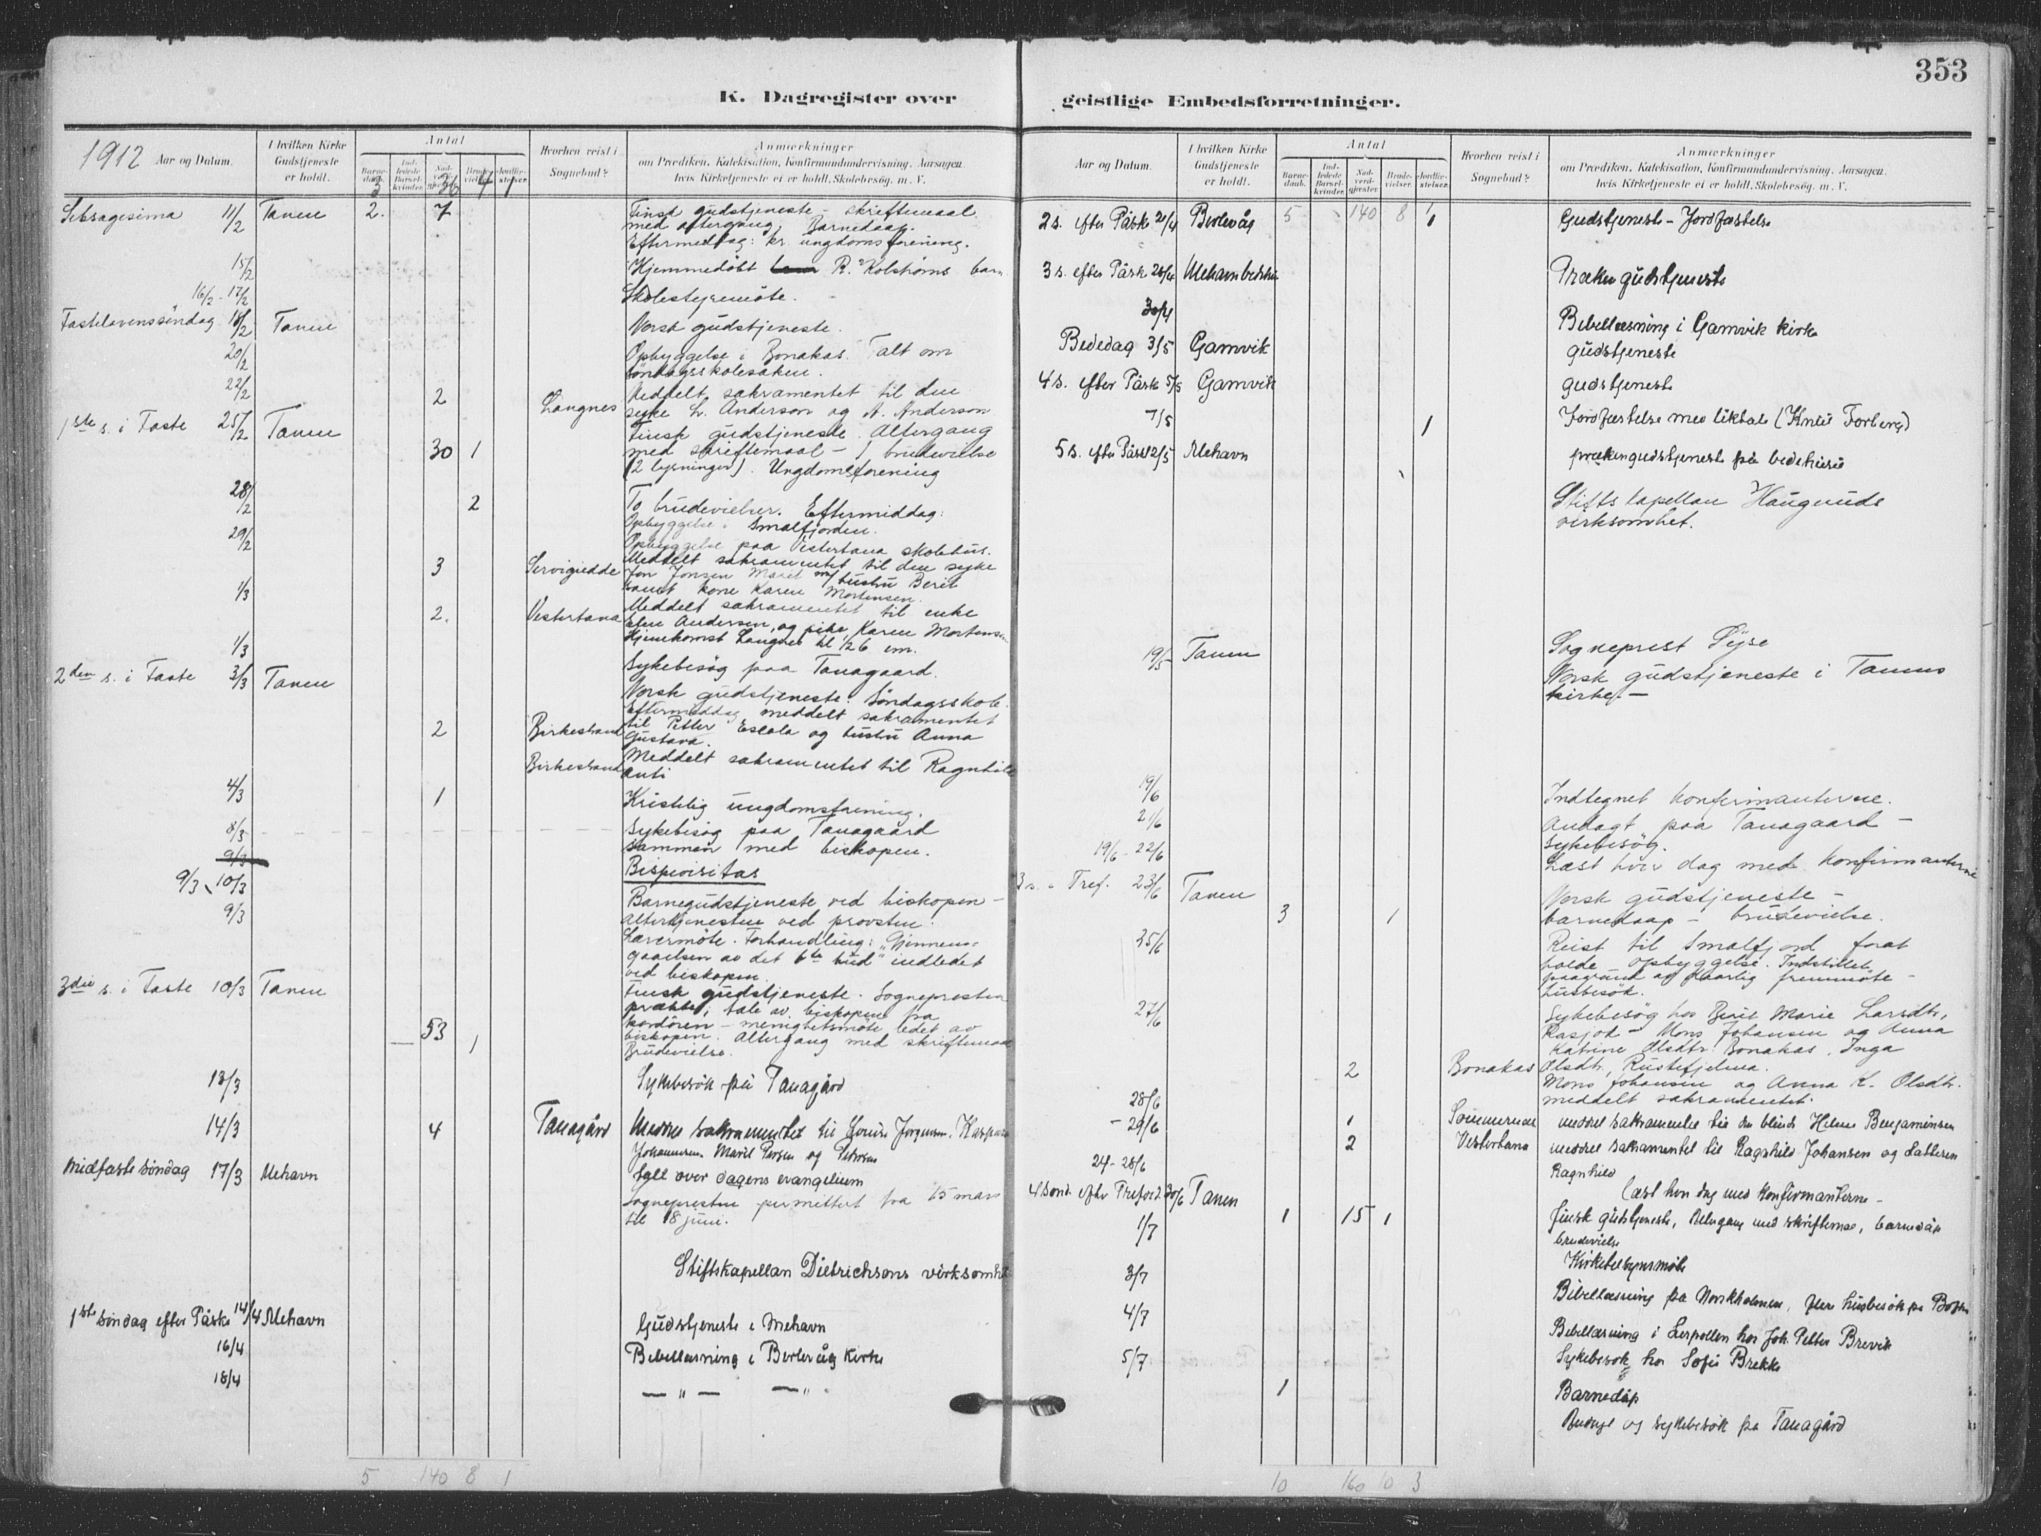 353
K. Dagregister over geistlige Embedsforretninger.
1912 Aar og Datum.
I hvilken Kirke Gudstjeneste er holdt.
Antal
Barne-daab.
Ind-ledede Barsel-kvinder.
Nad-verd-gjester.
Brude-vielser.
Jordfæ-stelser.
Hvorhen reist i Sognebud?
Anmærkninger
om Prædiken, Katekisation, Konfirmandundervisning, Aarsagen,
hvis Kirketjeneste ei er holdt, Skolebesøg, m. V.
3 36 4 1
11/2 Tanen 2. 7 Finsk gudstjeneste - skriftemaal
med altergang, Barnedaap.
Eftermiddag: kr. ungdomsforening.
15/2 Hjemmedøbt R. Kolstrøms barn
16/2 - 17/2 Skolestyremøte.
Fastelavenssøndag 18/2 Tanen Norsk gudstjeneste.
20/2 Opbyggelse i Bonakas. Talt om
søndagsskolesaken.
22/2 2 Langnes Meddelt sakramentet til den
syke L. Anderson og A. Anderson
1ste s. i Faste 25/2 Tanen Finsk gudstjeneste. Altergang
30 1 med skriftemaal - 1 brudevielse
(2 lysninger). Ungdomsforening
28/2 2 To brudevielser. Eftermiddag:
Opbyggelse i Smalfjorden.
29/2 Opbyggelse paa Vestertana skolehus.
3 Meddelt sakramentet til den syke
Jon Jonsen m/ hustru Berit
samt kone Karen Mortensen.
1/3 2. Vestertana Meddelt sakramentet til enke
Elen Andersen, og pike Karen Mortensen
Hjemkomst Langnes kl 26 em.
1/3 Sykebesøg paa Tanagaard.
2den s. i Faste 3/3 Tanen Norsk gudstjeneste. Søndagsskole.
Eftermiddag meddelt sakramentet
2 Birkestrand til Petter Escola og hustru Anna
Gustava.
Birkestrand Meddelt sakramentet til Ragnhild
Anti
4/3 1 Kristelig ungdomsforening.
8/3 Sykebesøg paa Tanagaard
9/3 sammen med biskopen.
9/3, 10/3 Bispevisitas
9/3 Barnegudstjeneste ved biskopen -
altertjenesten ved provsten.
Lærermøte. Forhandling: "Gjennem-
gaaelsen av det 6te bud" indledet
ved biskopen
3die s. i Faste 10/3 Tanen Finsk gudstjeneste. Sognepresten
præket, tale av biskopen fra
kordøren - menighetsmøte ledet av
53 1 biskopen. Altergang med skriftemaal
Brudevielse.
13/3 Sykebesøk på Tanagård
14/3 4 Tanagård sakramentet til Louise Jørgensen, Kaspara
Johannesen, Marit Persen og
Midfaste søndag 17/3 Mehavn tall over dagens evangelium
Sognepresten permittert fra 15 mars
til 18 juni.
Stiftskapellan Dietrichsons virksomhet
1ste søndag efter Påske 14/4 Mehavn Gudstjeneste i Mehavn
16/4 Bibellæsning i Berlevåg kirke
18/4 — " — — "
5 140 8 1
Aar og Datum.
I hvilken Kirke Gudstjeneste er holdt.
Antal
Barne-daab.
Ind-ledede Barsel-kvinder.
Nad-verd-gjester.
Brude-vielser.
Jordfæ-stelser.
Hvorhen reist i Sognebud?
Anmærkninger
om Prædiken, Katekisation, Konfirmandundervisning, Aarsagen,
hvis Kirketjeneste ei er holdt, Skolebesøg, m. V.
5 140 8 1
2 s. efter Påske 21/4 Berlevåg 1 Gudstjeneste - Jordfæstelse
3 s. efter Påsk 28/4 Mehavn bedehus Præken gudstjeneste
30/4 Bibellæsning i Gamvik kirke
Bededag 3/5 Gamvik gudstjeneste
4 s. efter Påsk 5/5 Gamvik gudstjeneste
7/5 1 Jordfæstelse med liktale (Knut Forberg)
5 s. efter Påsk 12/5 Mehavn prækengudstjeneste på bedehuset
Stiftskapellan Haugruds
virksomhet.
Sogneprest
19/5 Tanen Norsk gudstjeneste i Tanens
kirke. -
19/6 Indtegnet konfirmanterne.
21/6 Andagt paa Tanagaard -
Sykebesøg.
19/6 - 22/6 Læst hver dag med konfirmanterne
3 s. e. Tref. 23/6 Tanen Norsk gudstjeneste -
3 1 barnedaap - brudevielse.
25/6 Reist til Smalfjord forat
holde opbyggelse. Indstillet
paagrund av daarlig fremmøte -
husbesøk.
27/6 Sykebesøg hos Berit Marie Larsdtr,
Mons Johansen og Anna
Katrine Olsdtr. Bonakas. Inga
2 Bonakas Olsdtr, Rustefjelma.
Mons Johansen og Anna K. Olsdtr.
28/6 meddelt sakramentet.
- 29/6 1 meddel sakramentet til den blinde Helene Benjaminsen
2 Vestertana meddel sakramentet til Ragnhild Johansen og datteren
Ragnhild
24 - 28/6 læst hver dag med konfirmanterne -
4 sønd. efter Trefold. 30/6 Tanen 1 15 1 finsk gudstjeneste, altergang med skriftemål, barnedåp
brudevielse
1/7 Kirketilsynsmøte
3/7 Bibellæsning på
4/7 Bibellæsning i Leirpollen hos Joh. Petter Brevik
5/7 Sykebesøk hos Sofie Brekke
1 Barnedåp
og sykebesøk på Tanagård
10 160 10 3